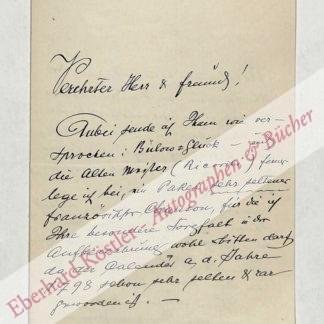 Verehrter Herr & Freund!
Anbei sende ich Ihnen wie ver-
sprochen: Bülows Glück –
die Alten Meister (Ricordi) ferner
lege ich bei, ein Paket sehr seltener
französischer Chanson, für die ich
Ihre besondere Sorgfalt in der
Aufbewahrung wohl bitten darf
da der Calendes a. d. Jahre
98 schon sehr selten & rar
geworden ist. —
Eberhard Köstler · Autographen & Bücher